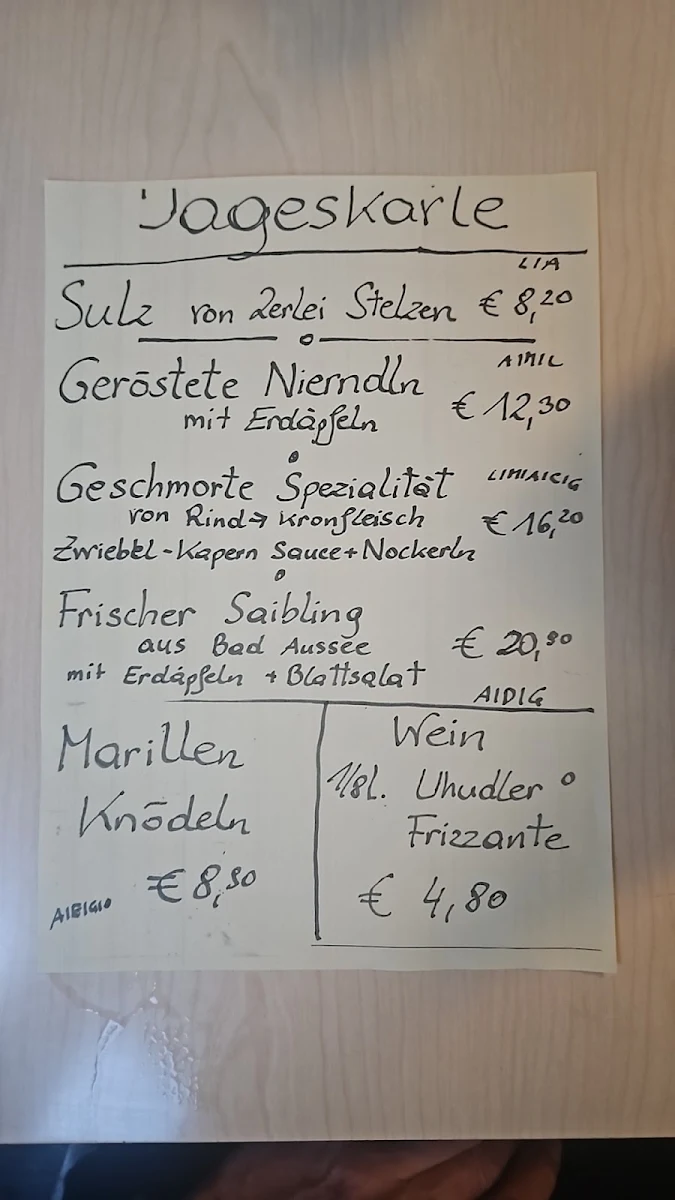 Tageskarte
L|A
Sulz von 2erlei Stelzen € 8,20
A|M|L
Geröstete Nierndln
mit Erdäpfeln € 12,30
Geschmorte Spezialität L|M|A|C|G
von Rind→ Kronfleisch € 16,20
Zwiebel-Kapern Sauce+Nockerln
Frischer Saibling
aus Bad Aussee
mit Erdäpfeln + Blattsalat
A|D|G
Marillen
Knödeln
Wein
1/8l. Uhudler
Frizzante
€ 4,80